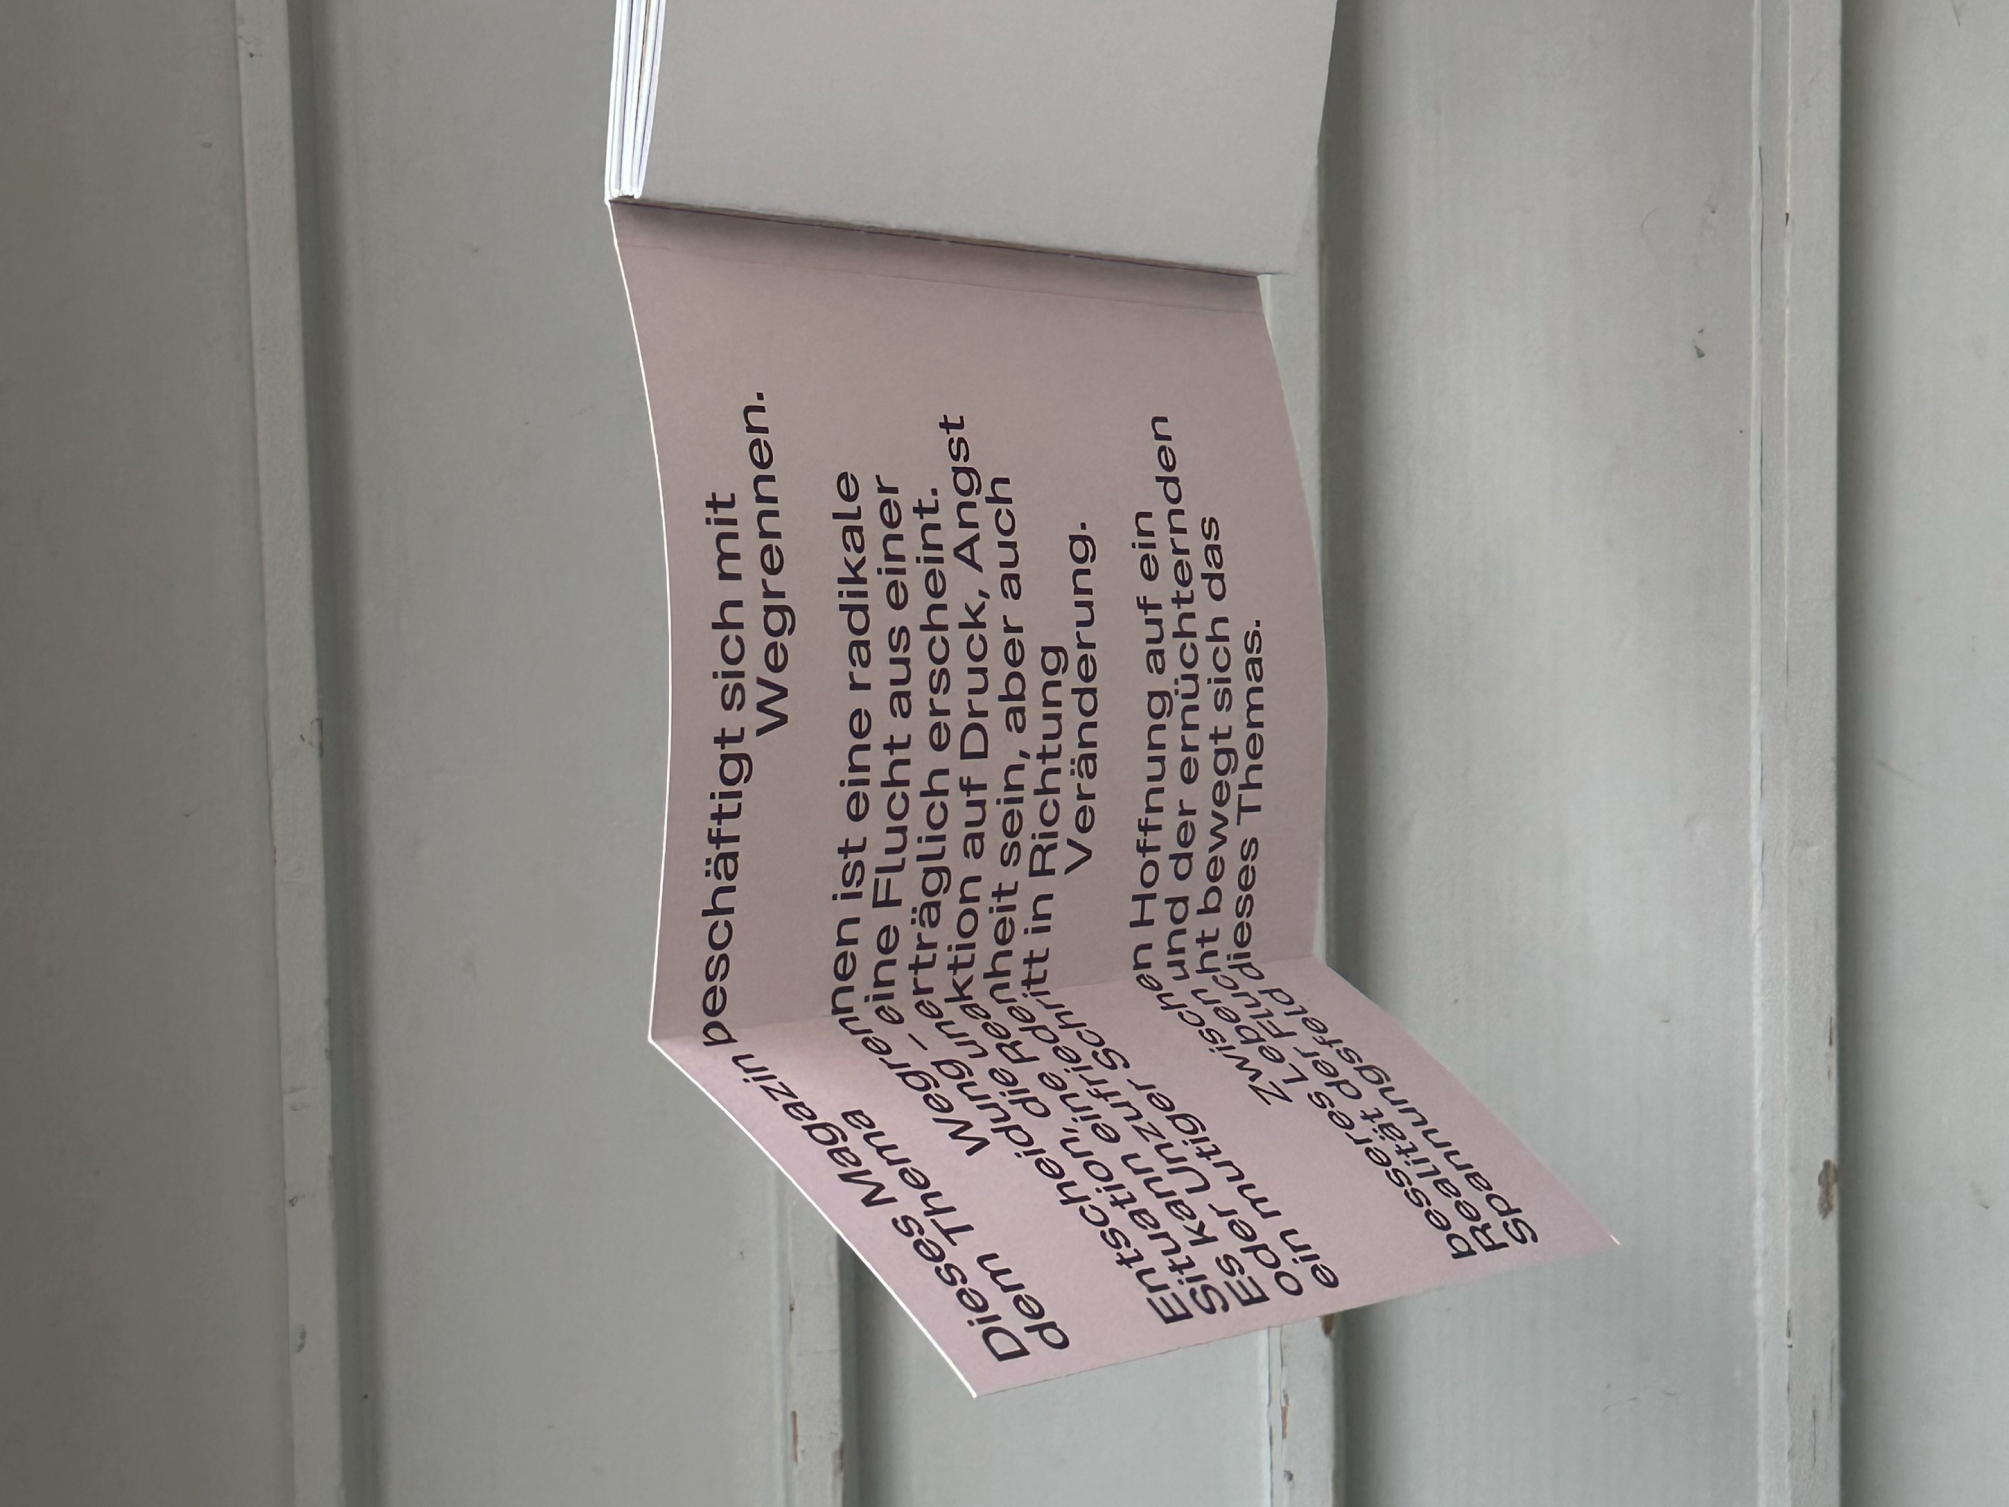 Dieses Magazin beschäftigt sich mit
dem Thema Wegrennen.
Wegrennen ist eine radikale
Entscheidung – eine Flucht aus einer
Situation, die unerträglich erscheint.
Es kann eine Reaktion auf Druck, Angst
oder Unzufriedenheit sein, aber auch
ein mutiger Schritt in Richtung
Veränderung.
Zwischen Hoffnung auf ein
besseres Leben und der ernüchternden
Realität der Flucht bewegt sich das
Spannungsfeld dieses Themas.